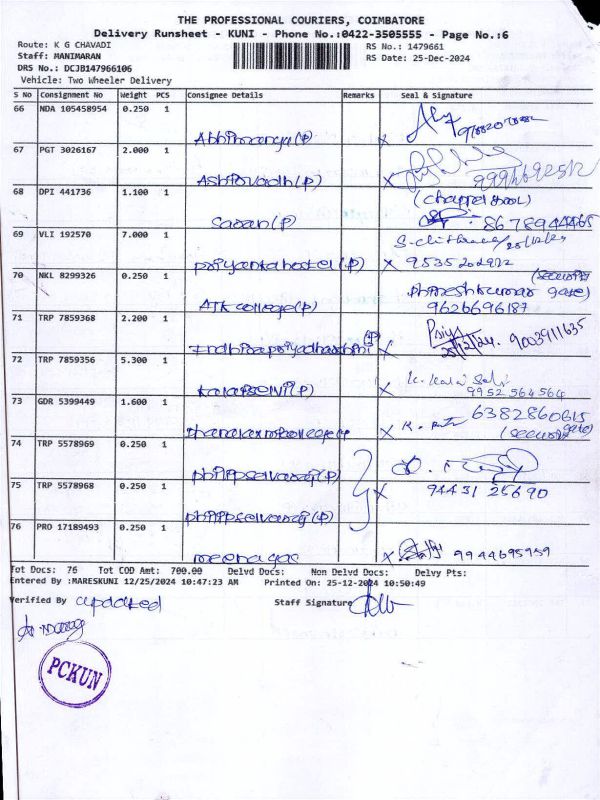 THE PROFESSIONAL COURIERS, COIMBATORE
Delivery Runsheet - KUNI - Phone No.:0422-3505555 - Page No.:6
Route: K G CHAVADI RS No.: 1479661
Staff: MANIMARAN RS Date: 25-Dec-2024
DRS No.: DCJB147966106
Vehicle: Two Wheeler Delivery
S NO Consignment No Weight PCS Consignee Details Remarks Seal & Signature
66 NDA 105458954 0.250 1
Abhimanya(P)
67 PGT 3026167 2.000 1
(P)
68 DPI 441736 1.100 1
(P) 8678944465
69 VLI 192570 7.000 1
priyanka hostel (P) 9535202912
70 NKL 8299326 0.250 1 (security
gate)
ATK college(P) 9626696187
71 TRP 7859368 2.200 1 Priya
25/12/24. 9003911635
72 TRP 7859356 5.300 1
kalaiselvi(P) 9952564564
73 GDR 5399449 1.600 1 6382860615
(security gate)
74 TRP 5578969 0.250 1
(P)
75 TRP 5578968 0.250 1 94431 25690
(P)
76 PRO 17189493 0.250 1
meenagas 9944695959
Tot Docs: 76 Tot COD Amt: 700.00 Delvd Docs: Non Delvd Docs: Delvy Pts:
Entered By :MARESKUNI 12/25/2024 10:47:23 AM Printed On: 25-12-2024 10:50:49
Verified By updated Staff Signature
PCKUN